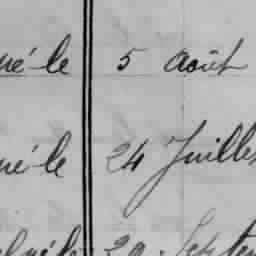 né le 5 Août
né le 24 Juillet
né le 29 Septem